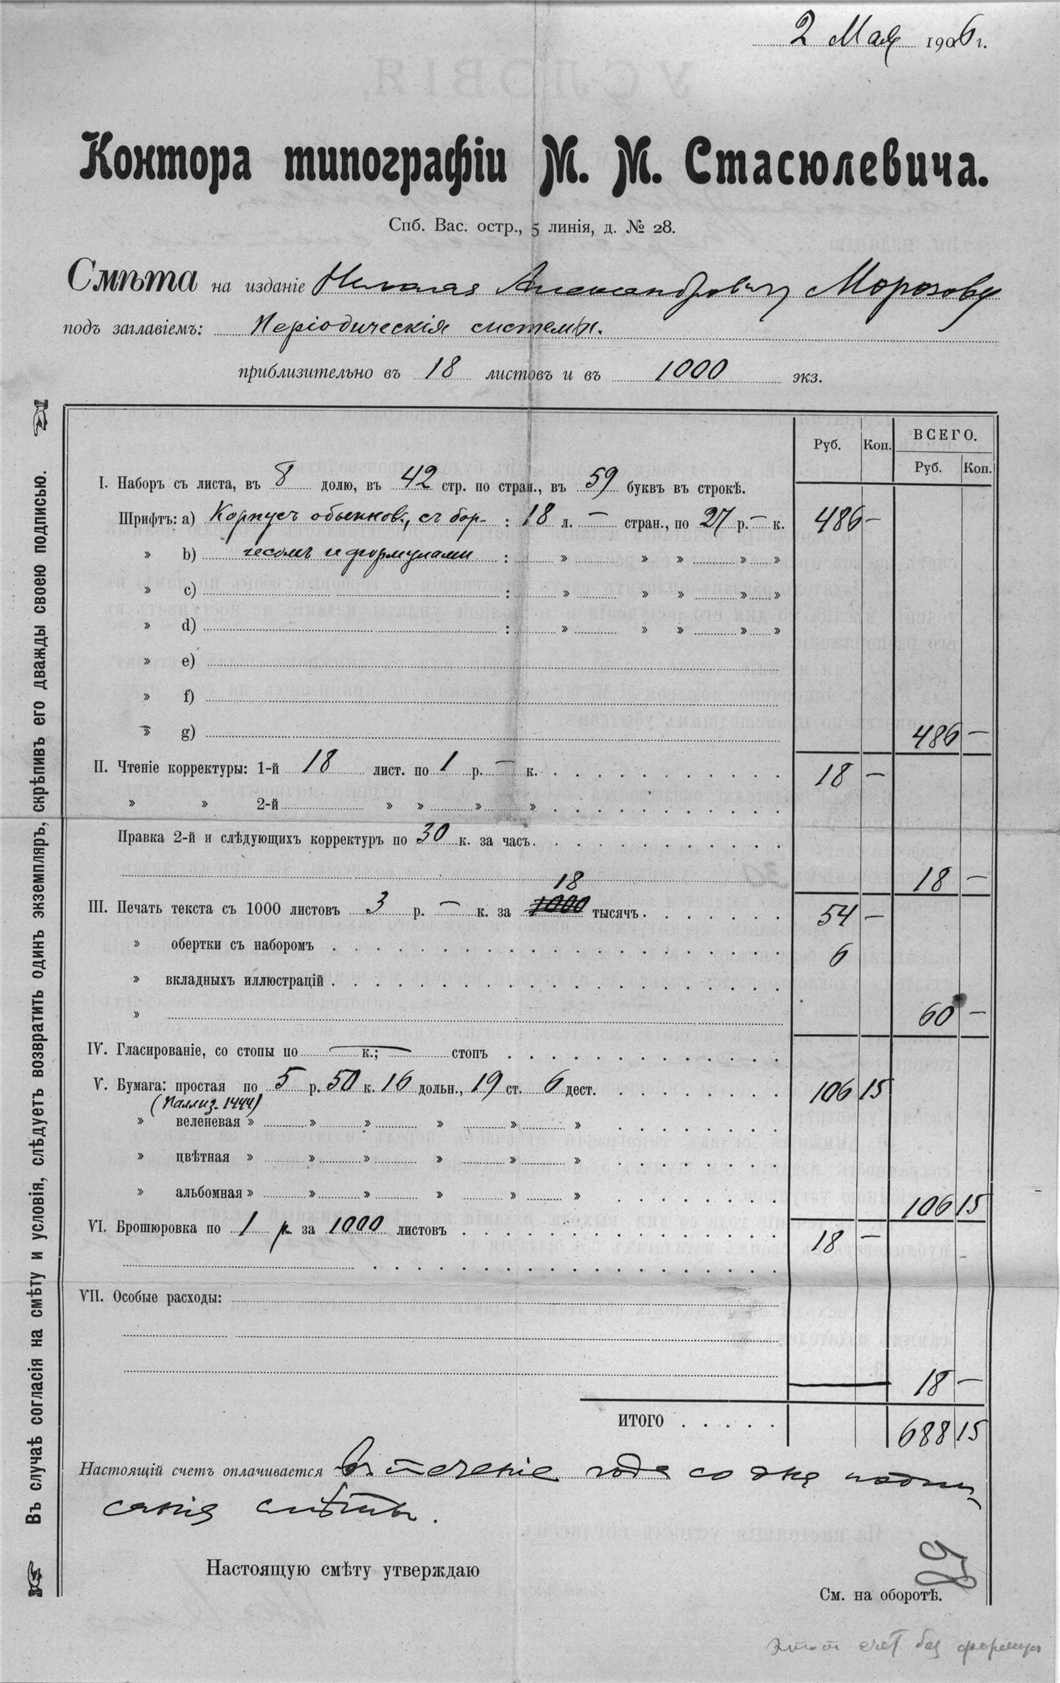 2 Мая 1906 г.
Контора типографіи М. М. Стасюлевича.
Спб. Вас. остр., 5 линія, д. № 28.
Смѣта на изданіе Николая Александровичу Морозову
подъ заглавіемъ: Періодическія системы.
приблизительно въ 18 листовъ и въ 1000 экз.
Руб. Коп. ВСЕГО.
Руб. Коп.
I. Наборъ съ листа, въ 8 долю, въ 42 стр. по стран., въ 59 буквъ въ строкѣ.
Шрифтъ: a) Корпусъ обыкнов., съ бор- : 18 л. — стран., по 27 р. — к. 486 —
» b) гесомъ и формулами : » » » »
» c) : » » » »
» d) : » » » »
» e)
» f)
» g) 486 —
II. Чтеніе корректуры: 1-й 18 лист. по 1 р. — к. 18 —
» » 2-й » » » »
Правка 2-й и слѣдующихъ корректуръ по 30 к. за часъ.
18 —
18
III. Печать текста съ 1000 листовъ 3 р. — к. за 1000 тысячъ 54 —
» обертки съ наборомъ 6
» вкладныхъ иллюстрацій
» 60 —
IV. Гласированіе, со стопы по — к.; — стопъ
V. Бумага: простая по 5 р. 50 к. 16 дольн., 19 ст. 6 дест. 106 15
(Паллиз. 1444)
» веленевая » » » » » »
» цвѣтная » » » » » »
» альбомная » » » » » » 106 15
VI. Брошюровка по 1 р. за 1000 листовъ 18 —
VII. Особые расходы:
18 —
ИТОГО 688 15
Настоящій счетъ оплачивается въ теченіе года со дня подпи-
санія смѣты.
Настоящую смѣту утверждаю
См. на оборотѣ.
этот счет без
Въ случаѣ согласія на смѣту и условія, слѣдуетъ возвратить одинъ экземпляръ, скрѣпивъ его дважды своею подписью.